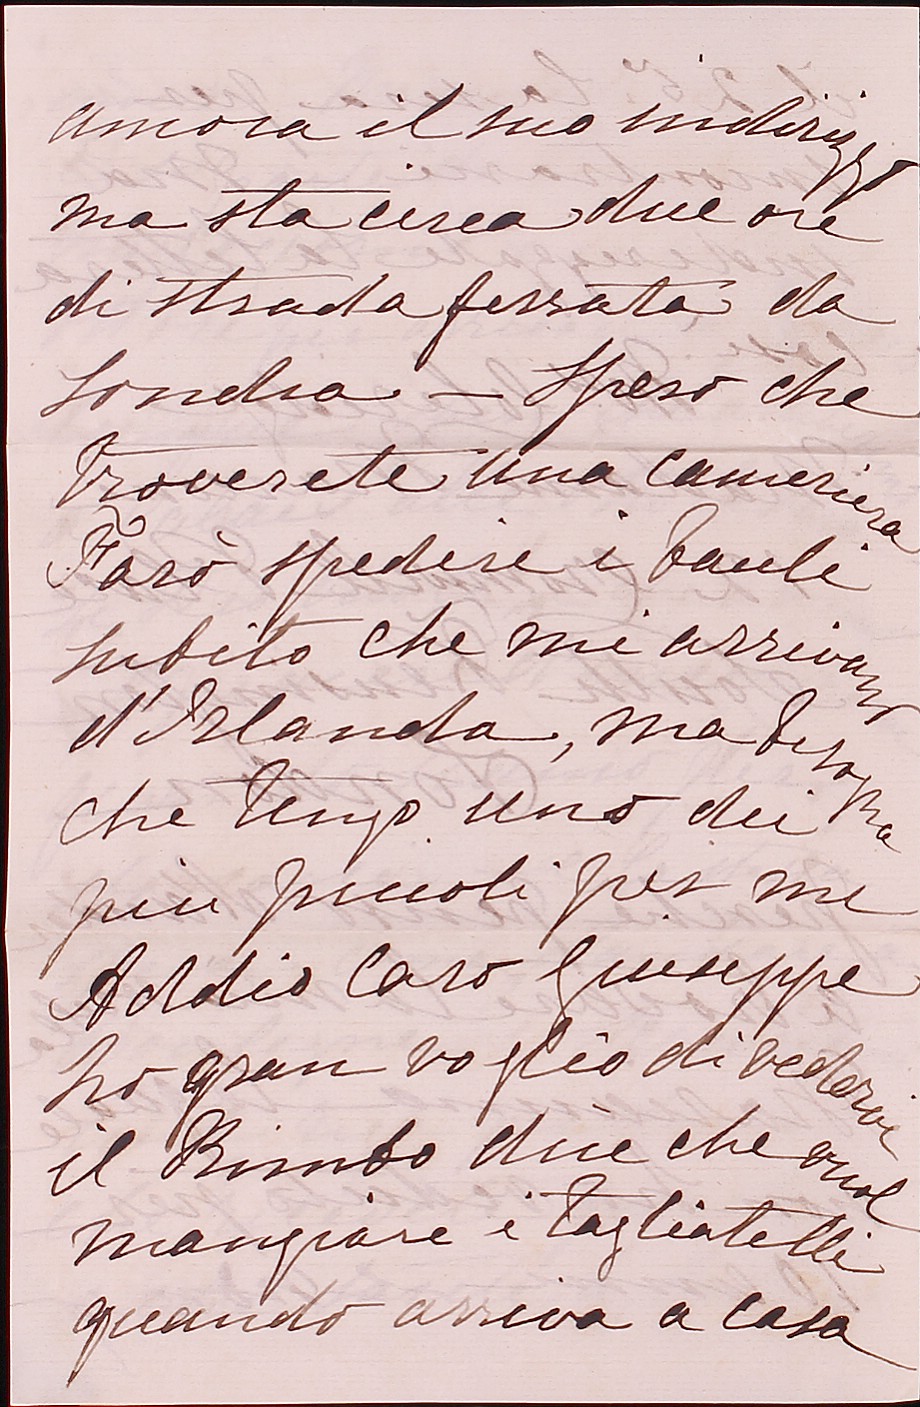 ancora il suo indirizzo
ma sta circa due ore
di strada ferrata da
Londra – Spero che
troverete una cameriera
Farò spedire i bauli
subito che mi arrivano
d'Irlanda, ma bisogna
che tengo uno dei
piu piccoli per me
Addio Caro Giuseppe
ho gran voglio di vedervi
il Bimbo dice che vuol
mangiare i tagliatelli
quando arriva a casa